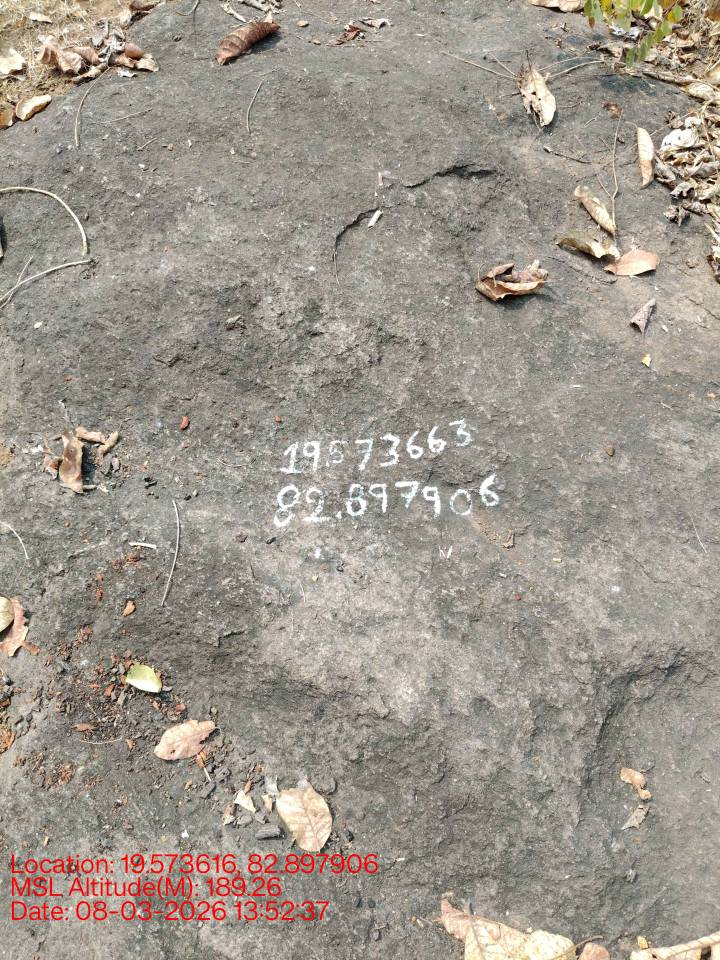 19.573663
82.897906
Location: 19.573616, 82.897906
MSL Altitude(M): 189.26
Date: 08-03-2026 13:52:37